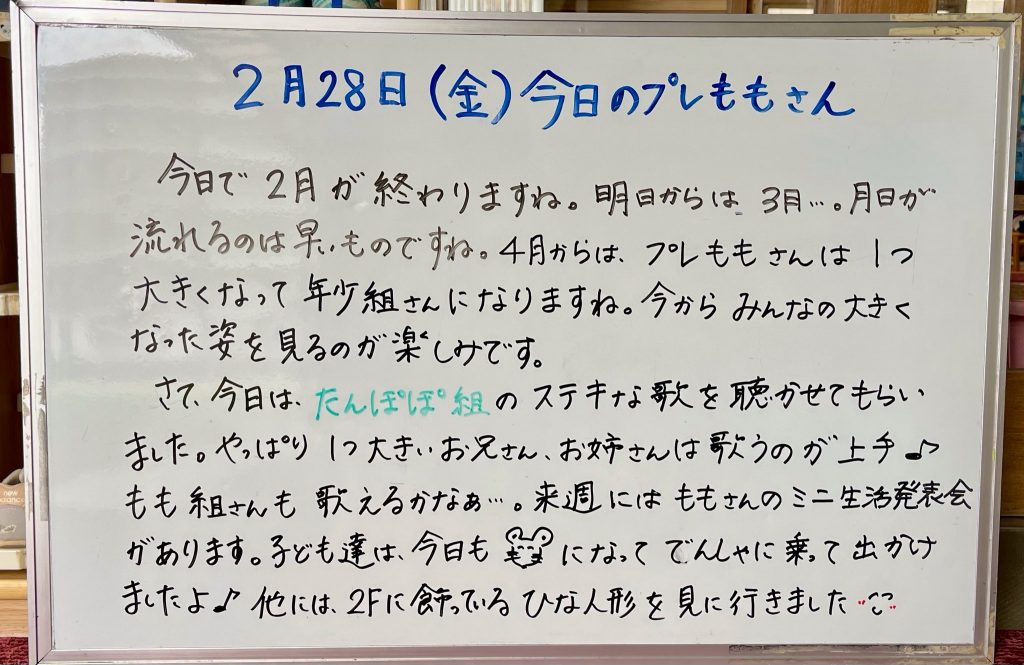 2月28日(金)今日のプレももさん
今日で2月が終わりますね。明日からは3月…。月日が
流れるのは早いものですね。4月からは、プレももさんは1つ
大きくなって年少組さんになりますね。今からみんなの大きく
なった姿を見るのが楽しみです。
さて、今日は、たんぽぽ組のステキな歌を聴かせてもらい
ました。やっぱり1つ大きいお兄さん、お姉さんは歌うのが上手♪
もも組さんも歌えるかなぁ…。来週にはももさんのミニ生活発表会
があります。子ども達は、今日もになってでんしゃに乗って出かけ
ましたよ♪他には、2Fに飾っているひな人形を見に行きました
new